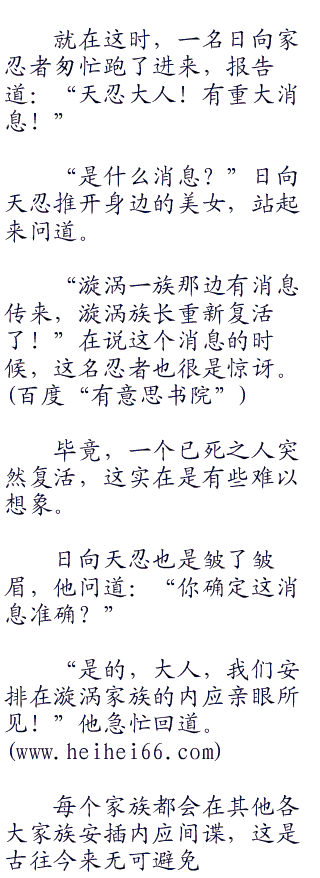 就在这时，一名日向家
忍者匆忙跑了进来，报告
道：“天忍大人！有重大消
息！”
“是什么消息？”日向
天忍推开身边的美女，站起
来问道。
“漩涡一族那边有消息
传来，漩涡族长重新复活
了！”在说这个消息的时
候，这名忍者也很是惊讶。
(百度“有意思书院”)
毕竟，一个已死之人突
然复活，这实在是有些难以
想象。
日向天忍也是皱了皱
眉，他问道：“你确定这消
息准确？”
“是的，大人，我们安
排在漩涡家族的内应亲眼所
见！”他急忙回道。
(www.heihei66.com)
每个家族都会在其他各
大家族安插内应间谍，这是
古往今来无可避免